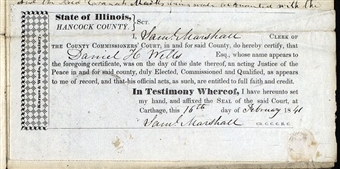 State of Illinois,
HANCOCK COUNTY.
} SCT.
I, Saml Marshall Clerk of
THE COUNTY COMMISSIONERS' COURT, in and for said County, do hereby certify, that
Daniel H Wells Esq., whose name appears to
the foregoing certificate, was on the day of the date thereof, an acting Justice of the
Peace in and for said county, duly Elected, Commissioned and Qualified, as appears
to me of record, and that his official acts, as such, are entitled to full faith and credit.
In Testimony Whereof, I have hereunto set
my hand, and affixed the SEAL of the said Court, at
Carthage, this 16th day of February 1841
Saml Marshall C.C.C.C.H.C.